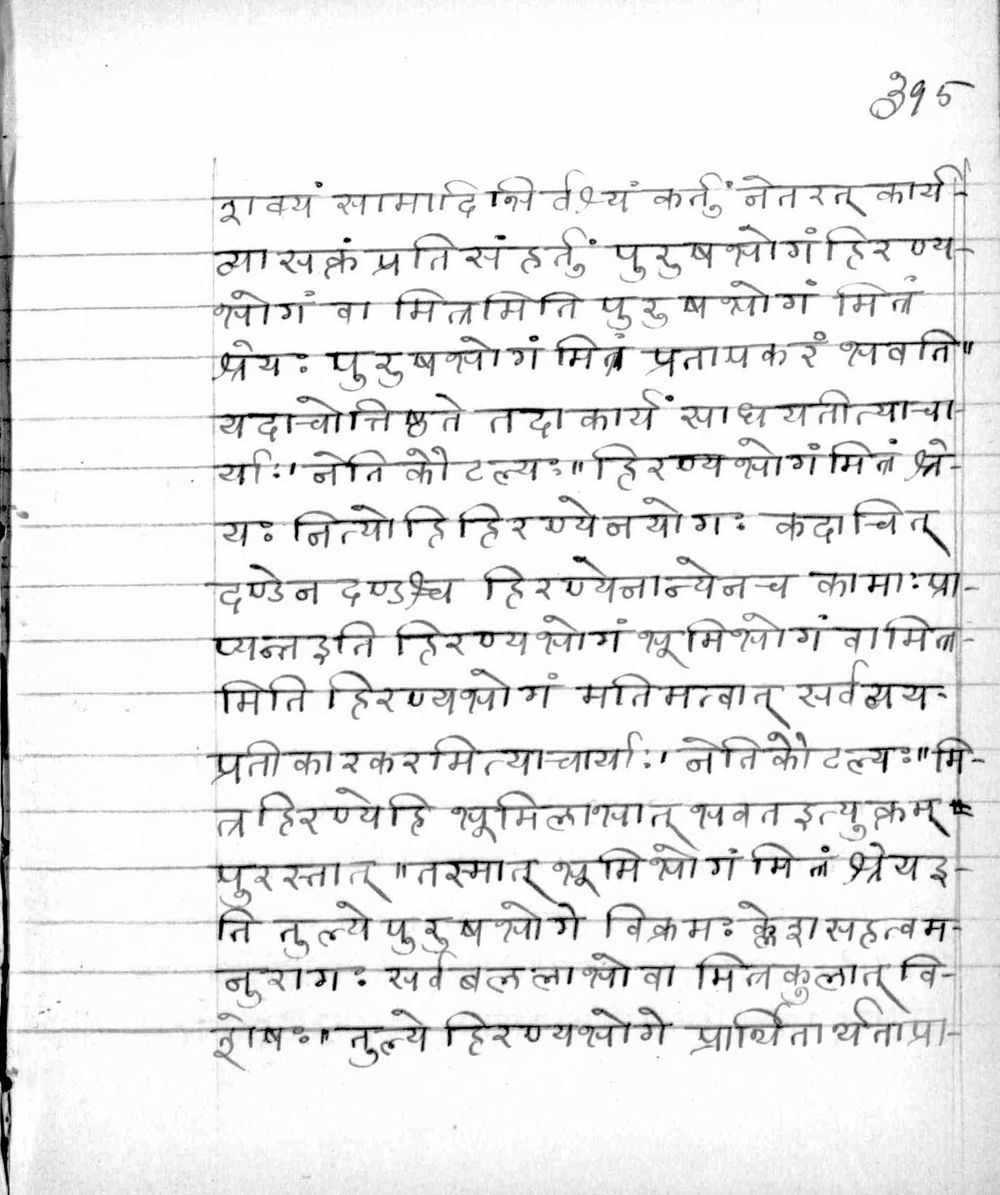 ३९५
शक्यं सामादिभिर्वश्यं कर्तुं नेतरत् कार्य-
व्यासक्तं प्रतिसंहर्तुं पुरुषभोगं हिरण्य-
भोगं वा मित्रमिति पुरुषभोगं मित्रं
श्रेयः पुरुषभोगं मित्रं प्रतापकरं भवति"
यदाचोत्तिष्ठते तदा कार्यं साधयतीत्याचा-
र्याः' नेति कौटल्यः" हिरण्यभोगं मित्रं श्रे-
यः नित्यो हि हिरण्येन योगः कदाचित्
दण्डेन दण्डश्च हिरण्येनान्येन च कामाः प्रा-
प्यन्त इति हिरण्यभोगं भूमिभोगं वा मित्र-
मिति हिरण्यभोगं मतिमत्वात् सर्वव्यय-
प्रतीकारकरमित्याचार्याः' नेति कौटल्यः" मि-
त्रहिरण्येहि भूमिलाभात् भवत इत्युक्तम्
पुरस्तात्" तस्मात् भूमिभोगं मित्रं श्रेय इ-
ति तुल्ये पुरुषभोगे विक्रमः क्लेशसहत्वम-
नुरागः सर्वबललाभो वा मित्रकुलात् वि-
शेषः" तुल्ये हिरण्यभोगे प्रार्थितार्थताप्रा-